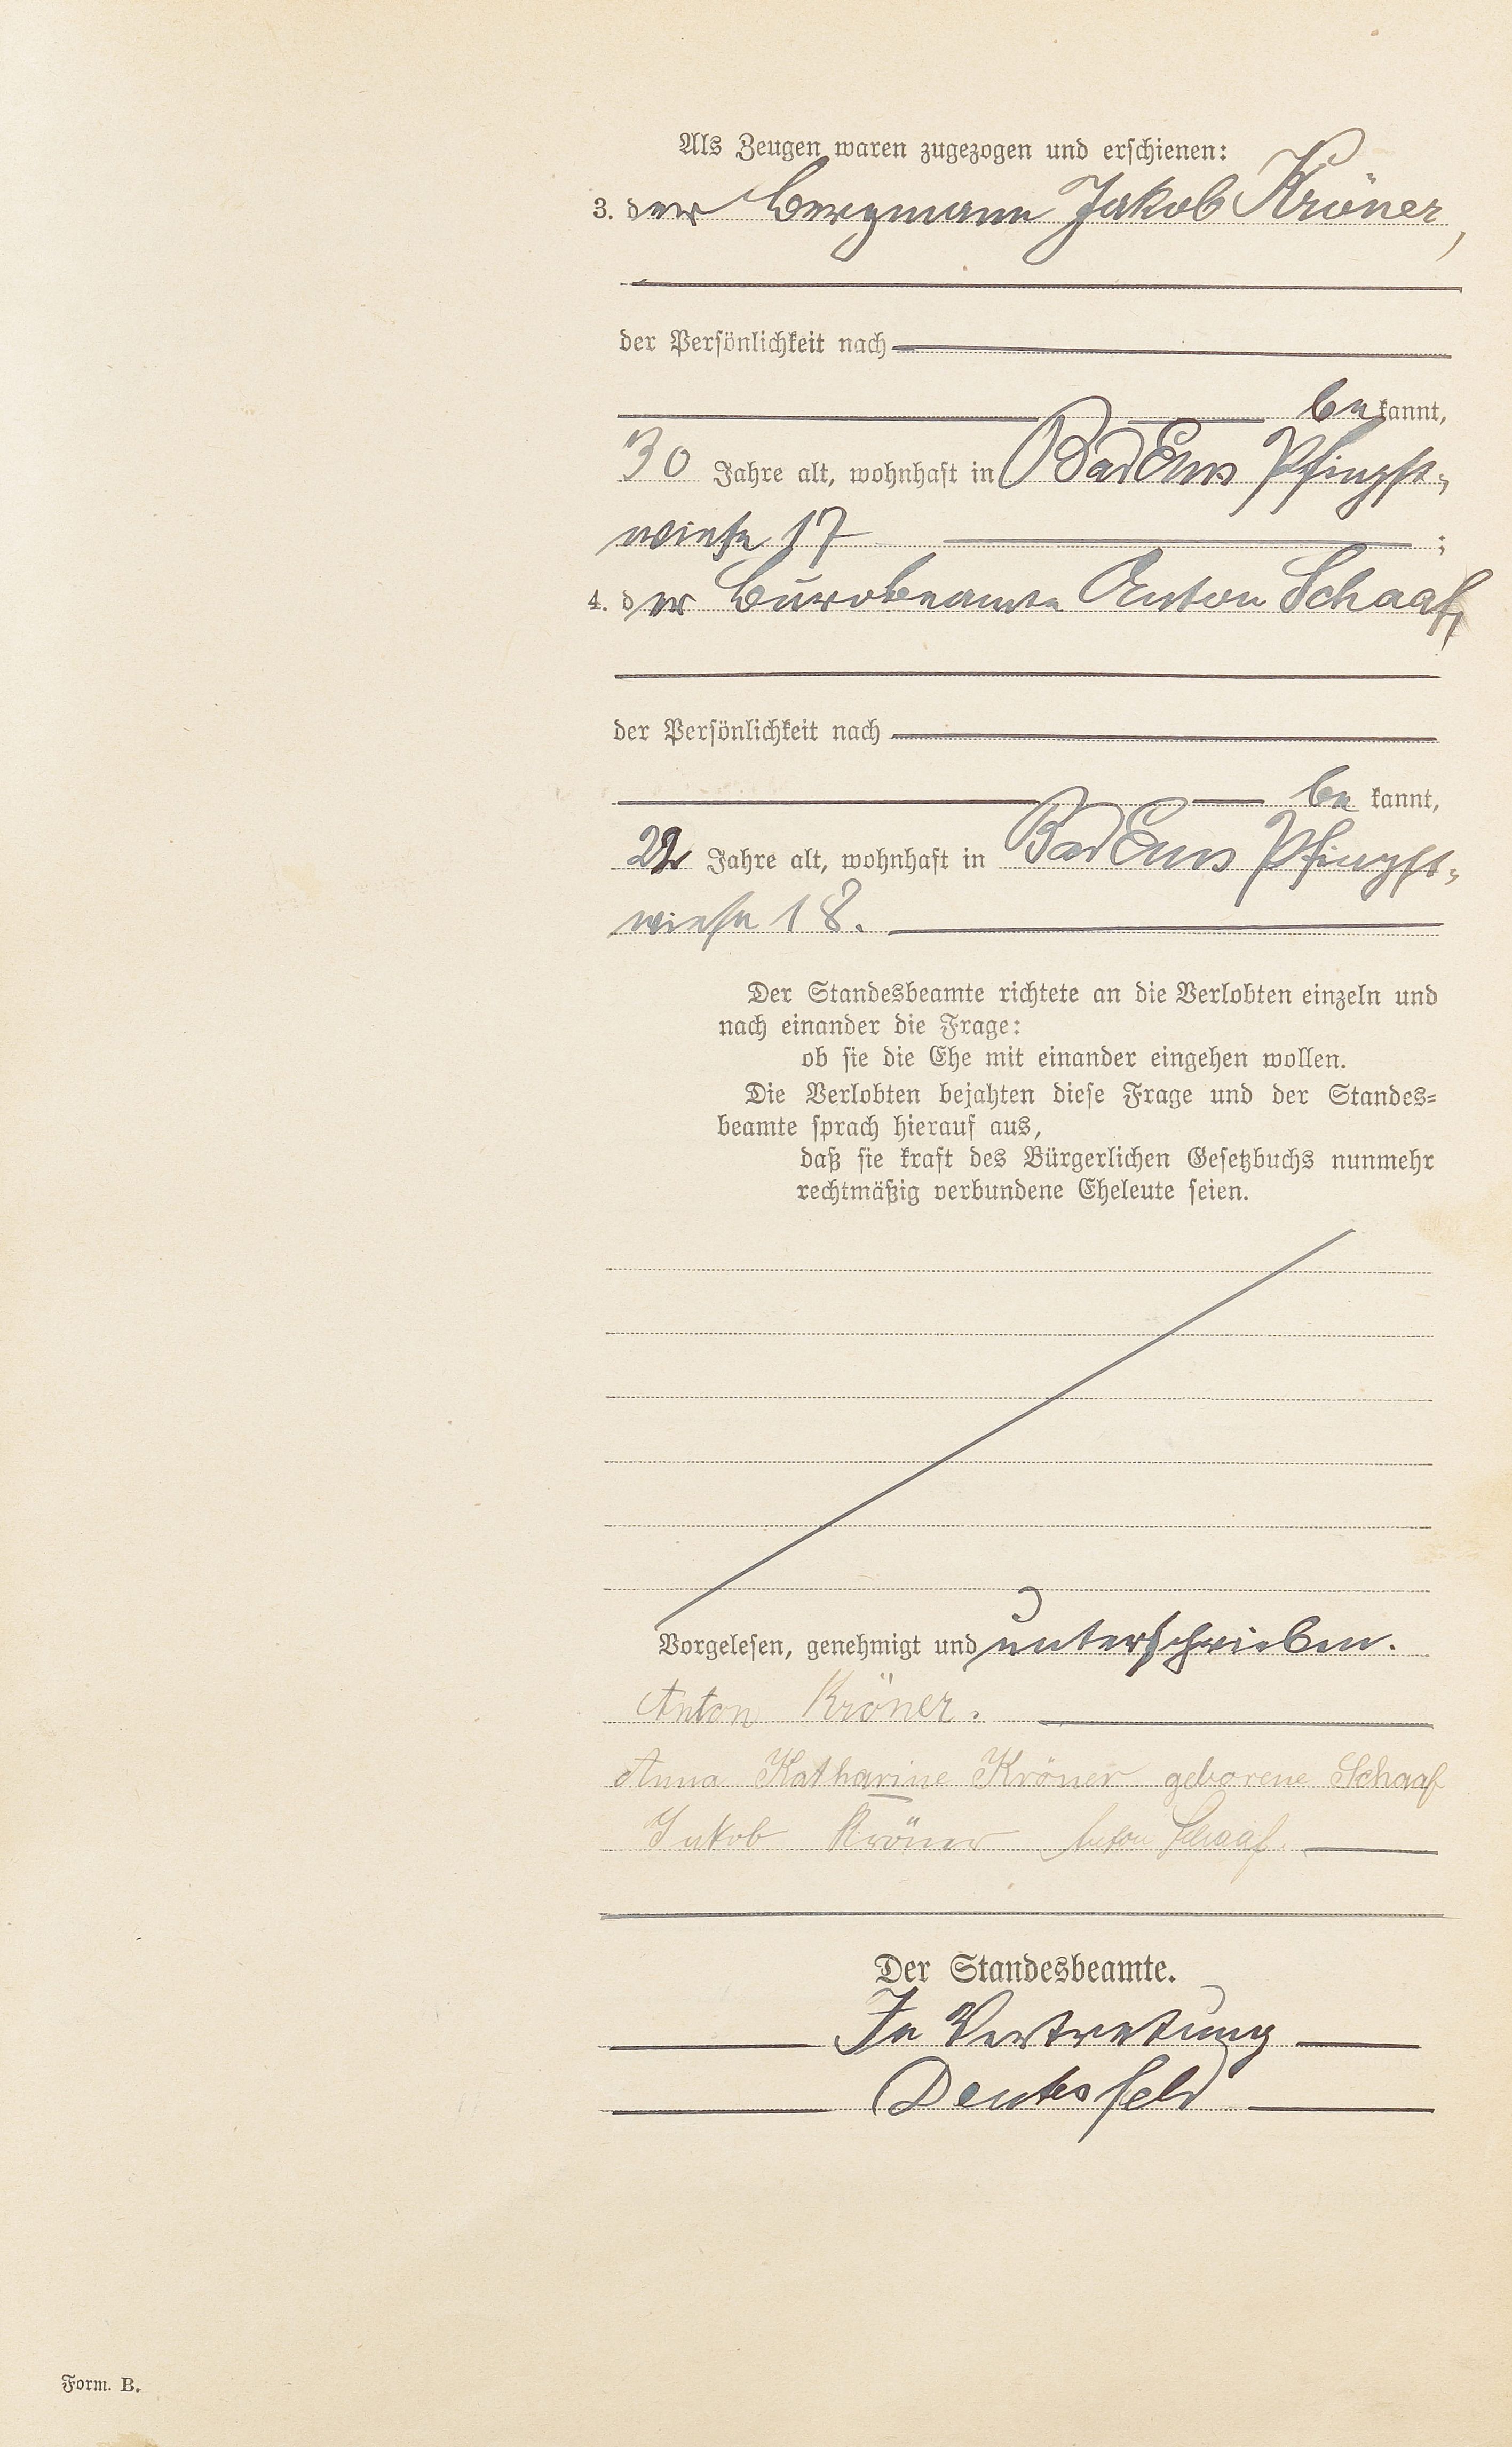 Als Zeugen waren zugezogen und erschienen:
3. der Bergmann Jakob Kröner,
der Persönlichkeit nach
be kannt,
30 Jahre alt, wohnhaft in Bad Ems Pfingst-
wiese 17 ;
4. der Bürobeamte Anton Schaaf,
der Persönlichkeit nach
be kannt,
22 Jahre alt, wohnhaft in Bad Ems Pfingst-
wiese 18.
Der Standesbeamte richtete an die Verlobten einzeln und
nach einander die Frage:
ob sie die Ehe mit einander eingehen wollen.
Die Verlobten bejahten diese Frage und der Standes-
beamte sprach hierauf aus,
daß sie kraft des Bürgerlichen Gesetzbuchs nunmehr
rechtmäßig verbundene Eheleute seien.
Vorgelesen, genehmigt und unterschrieben.
Anton Kröner.
Anna Katharine Kröner geborene Schaaf
Jakob Kröner Anton Schaaf.
Der Standesbeamte.
In Vertretung
Form. B.